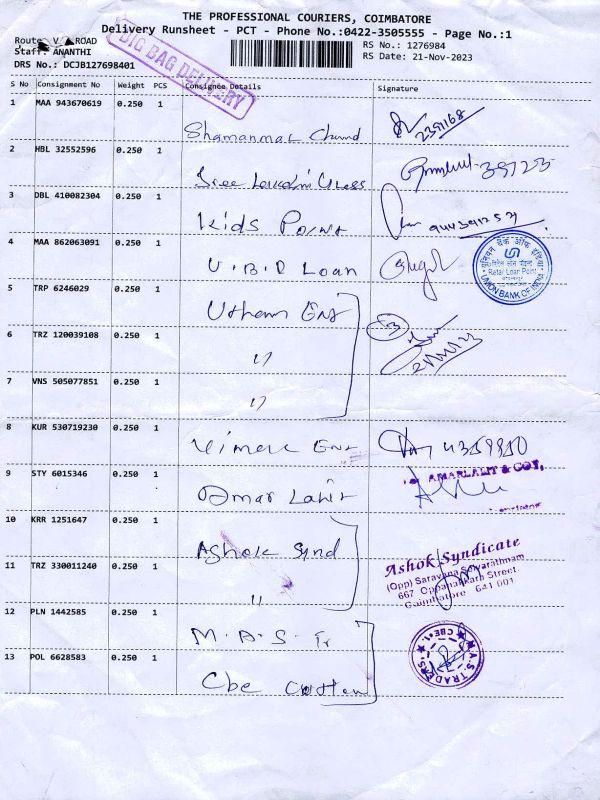 THE PROFESSIONAL COURIERS, COIMBATORE
Delivery Runsheet - PCT - Phone No.:0422-3505555 - Page No.:1
Route V. ROAD
Staff: ANANTHI
DRS No.: DCJB127698401
RS No.: 1276984
RS Date: 21-Nov-2023
BIG BAG DELIVERY
S No Consignment No Weight PCS Consignee Details Signature
1 MAA 943670619 0.250 1 2359168
2 HBL 32552596 0.250 1 Sree
3 DBL 410082304 0.250 1 Kids Point
4 MAA 862063091 0.250 1 U.B.I Loan
यूनियन बैंक ऑफ इंडिया
Retail Loan Point
UNION BANK OF INDIA
5 TRP 6246029 0.250 1
6 TRZ 120039108 0.250 1 "
7 VNS 505077851 0.250 1 "
8 KUR 530719230 0.250 1
AMARLALIT & CO.,
9 STY 6015346 0.250 1 Amar Lalit
10 KRR 1251647 0.250 1 Ashok Synd
Ashok Syndicate
(Opp) Saravana Selvarathnam
667 Oppanakkara Street
Coimbatore 641 001
11 TRZ 330011240 0.250 1 "
12 PLN 1442585 0.250 1 M.A.S. Tr
M.A.S. TRADERS CBE-1
13 POL 6628583 0.250 1 Cbe Cotton